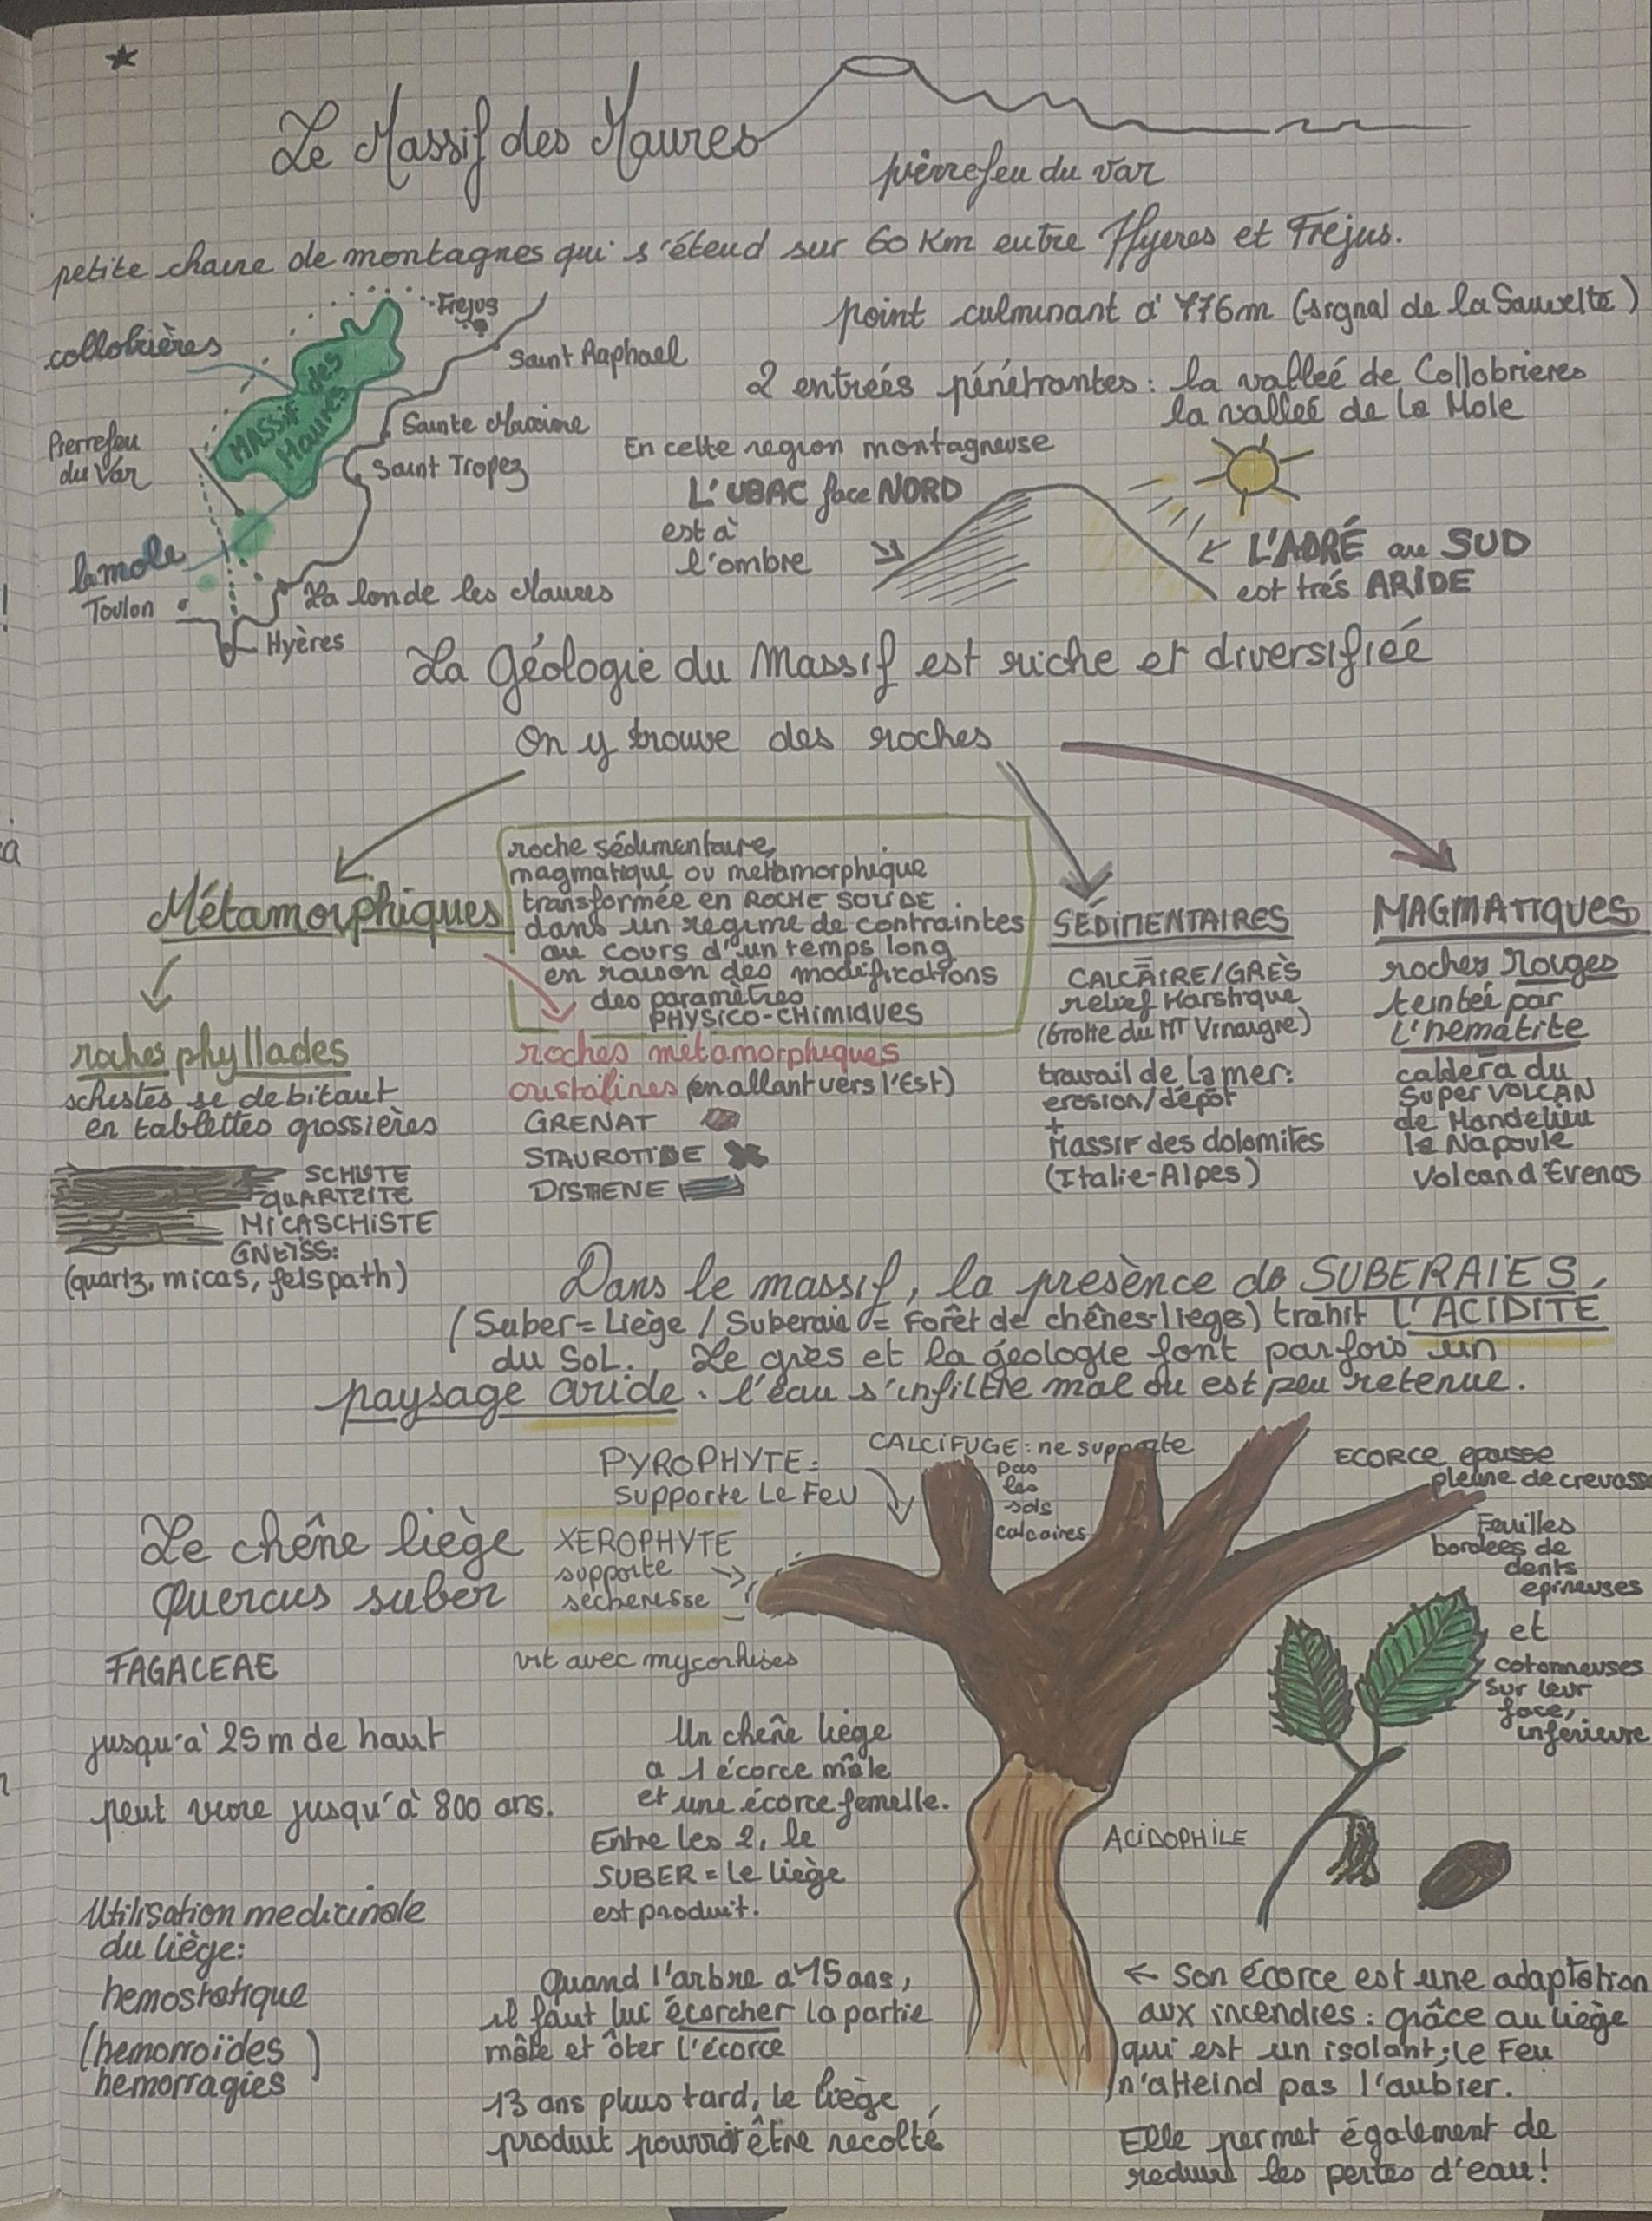 Le Massif des Maures
pierrefeu du var
petite chaine de montagnes qui s'étend sur 60 Km entre Hyeres et Frejus.
point culminant à 776m (signal de la Sauvette)
2 entrées pénétrantes : la valleé de Collobrieres
la valleé de La Mole
collobrières
Frejus
Saint Raphael
MASSIF des Maures
Sainte Maxime
Pierrefeu
du Var
Saint Tropez
la mole
Toulon
La londe les Maures
Hyères
En cette region montagneuse
L'UBAC face NORD
est à
l'ombre
L'ADRÉ au SUD
est trés ARIDE
La Géologie du Massif est riche et diversifieé
On y trouve des roches
Métamorphiques
roche sédimentaire,
magmatique ou metamorphique
transformée en ROCHE SOLIDE
dans un regime de contraintes
au cours d'un temps long
en raison des modifications
des paramètres
PHYSICO-CHIMIQUES
roches phyllades
schistes se debitant
en tablettes grossières
SCHISTE
QUARTZITE
MICASCHISTE
GNEISS:
(quartz, micas, felspath)
roches metamorphiques
cristalines (en allant vers l'Est)
GRENAT
STAUROTIDE
DISTHENE
SÉDIMENTAIRES
CALCAIRE/GRÈS
relief Karstique
(Grotte du MT Vinaigre)
travail de la mer:
erosion/dépôt
+
Massif des dolomites
(Italie-Alpes)
MAGMATIQUES
roches rouges
teinteé par
L'hematite
caldera du
Super VOLCAN
de Mandelieu
la Napoule
Volcan d'Evenos
Dans le massif, la presènce de SUBERAIES,
(Suber = Liège / Suberaie = Forêt de chênes-lieges) trahit L'ACIDITÉ
du SOL. Le grès et la géologie font parfois un
paysage aride. l'eau s'infiltre mal ou est peu retenue.
PYROPHYTE:
supporte Le Feu
CALCIFUGE : ne supporte
pas
les
sols
calcaires
ECORCE epaisse
pleine de crevasse
Le chêne liège
Quercus suber
XEROPHYTE
supporte
secheresse
Feuilles
bordees de
dents
epineuses
et
cotonneuses
sur leur
face,
inferieure
FAGACEAE
vit avec mycorhises
jusqu'à 25m de haut
peut vivre jusqu'à 800 ans.
Un chêne liège
a 1 écorce mâle
et une écorce femelle.
Entre les 2, le
SUBER = Le liège
est produit.
ACIDOPHILE
Utilisation medicinale
du liège:
hemostatique
(hemorroïdes
hemorragies)
Quand l'arbre a 15 ans,
il faut lui écorcher la partie
mâle et ôter l'écorce
13 ans plus tard, le liège
produit pourra être recolté
← Son écorce est une adaptation
aux incendies : grâce au liège
qui est un isolant; le Feu
n'atteind pas l'aubier.
Elle permet également de
reduire les pertes d'eau!